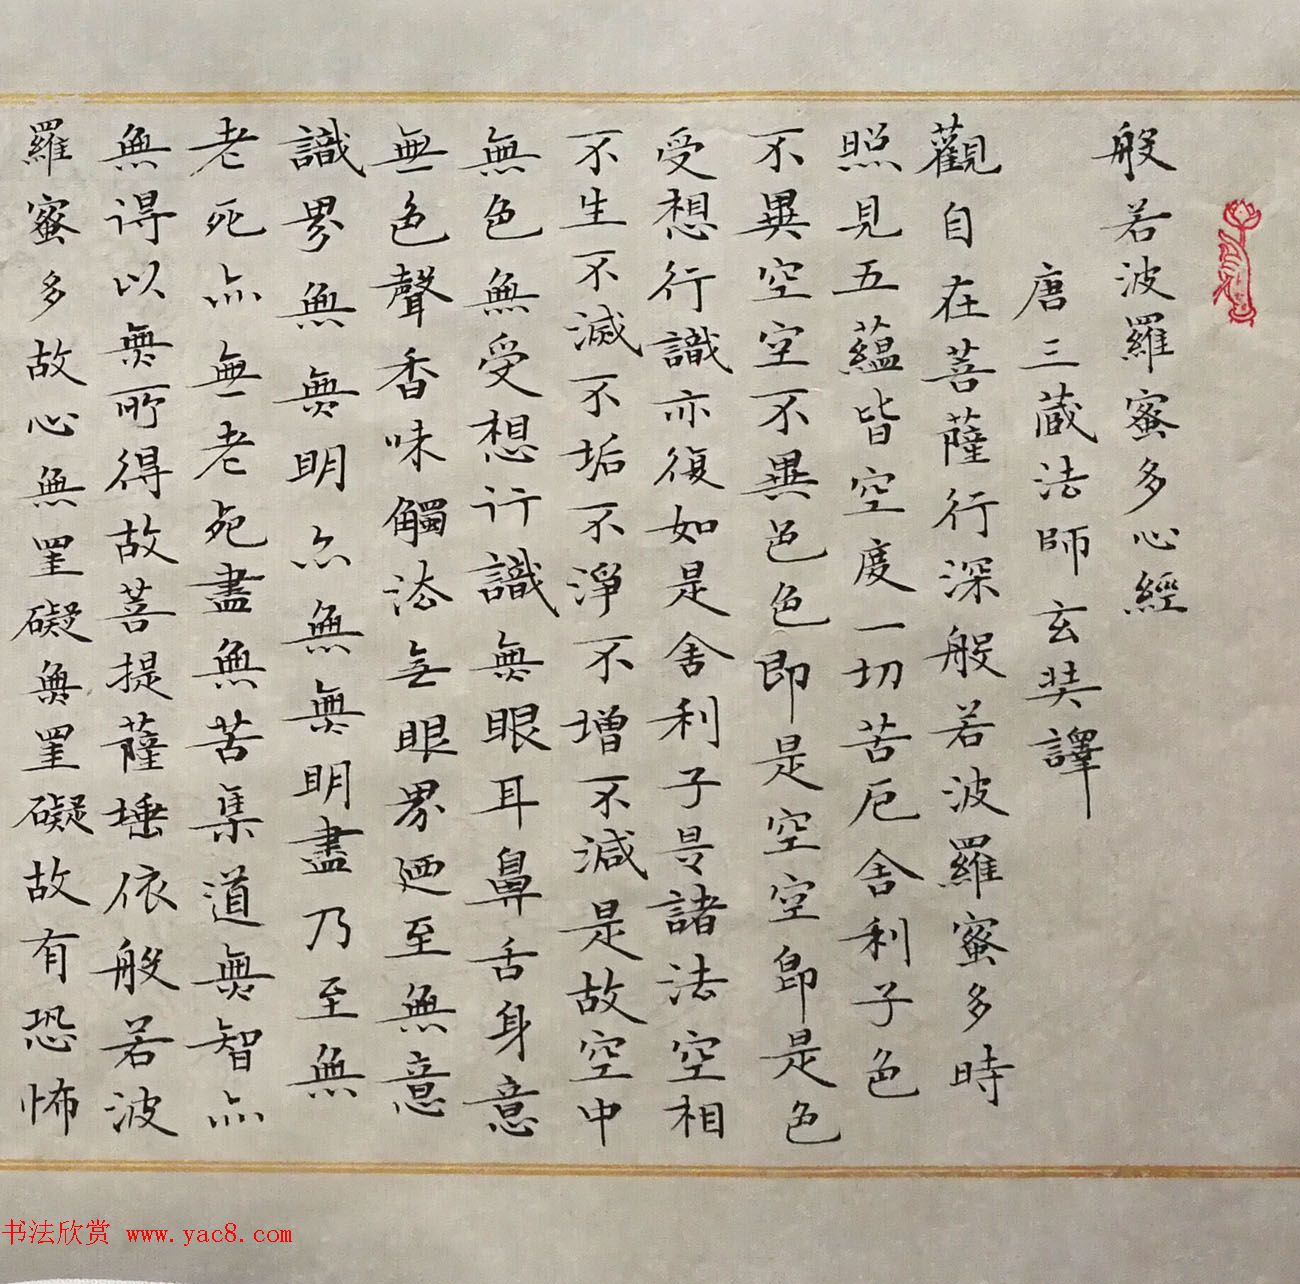 般若波羅蜜多心經
唐三藏法師玄奘譯
觀自在菩薩行深般若波羅蜜多時
照見五蘊皆空度一切苦厄舍利子色
不異空空不異色色即是空空即是色
受想行識亦復如是舍利子是諸法空相
不生不滅不垢不淨不增不減是故空中
無色無受想行識無眼耳鼻舌身意
無色聲香味觸法无眼界迺至無意
識界無無明亦無無明盡乃至無
老死亦無老死盡無苦集道無智亦
無得以無所得故菩提薩埵依般若波
羅蜜多故心無罣礙無罣礙故有恐怖
书法欣赏 www.yac8.com